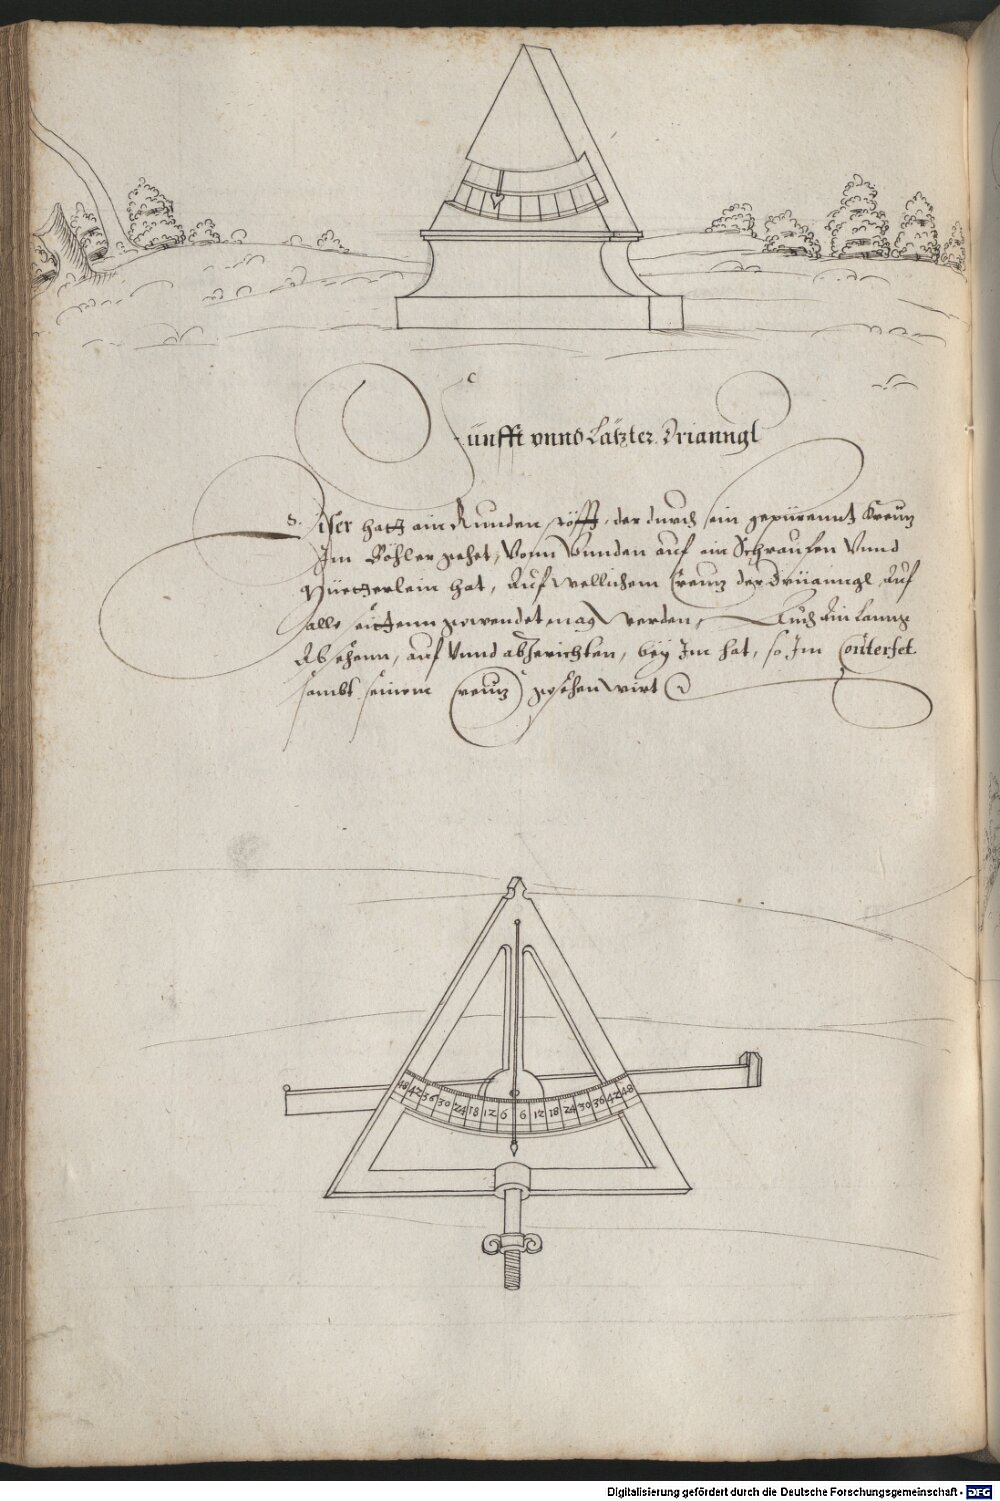 Fünfft vnnd Lätzter Drianngl
Diser hatt ain Runden, der durch sein gepürennt Kreuz
Im Böhler gehet, Vonn Vnnden auf ein Schraufen Vnnd
hat, Auf wellichem Creuz der Drüanngl Auf
alle seittenn gewendet mag werden, Auch Ain Lanng
Absehenn, auf Vnnd abzerichten, bey Im hat, so Im Conterfet
sambt seinem Creuz gesehen wirt
48 42 36 30 24 18 12 6 6 12 18 24 30 36 42 48
Digitalisierung gefördert durch die Deutsche Forschungsgemeinschaft - DFG